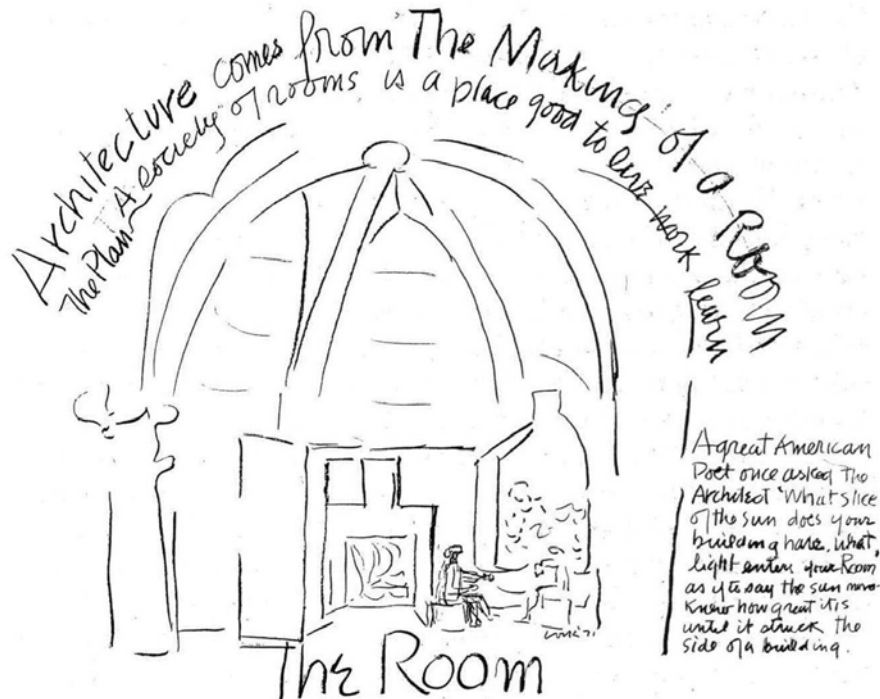 Architecture comes from The Making of a Room
The Plan A society of rooms is a place good to live work learn
A great American
Poet once asked the
Architect 'What slice
of the sun does your
building have, what
light enters your Room
as if to say the sun never
knew how great it is
until it struck the
side of a building.
The Room